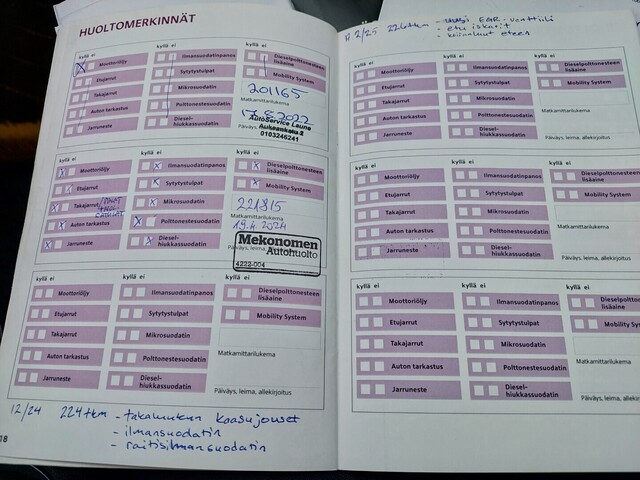 HUOLTOMERKINNÄT
kyllä ei
Moottoriöljy
Etujarrut
Takajarrut
Auton tarkastus
Jarruneste
kyllä ei
Ilmansuodatinpanos
Sytytystulpat
Mikrosuodatin
Polttonestesuodatin
Diesel-
hiukkassuodatin
kyllä ei
Dieselpolttonesteen
lisäaine
Mobility System
201165
Matkamittarilukema
17.8.2022
AutoService Laune
0103246241
kyllä ei
Moottoriöljy
Etujarrut
Takajarrut
Auton tarkastus
Jarruneste
kyllä ei
Ilmansuodatinpanos
Sytytystulpat
Mikrosuodatin
Polttonestesuodatin
Diesel-
hiukkassuodatin
kyllä ei
Dieselpolttonesteen
lisäaine
Mobility System
221815
Matkamittarilukema
19.4.2024
Mekonomen
Autohuolto
4222-004
kyllä ei
Moottoriöljy
Etujarrut
Takajarrut
Auton tarkastus
Jarruneste
kyllä ei
Ilmansuodatinpanos
Sytytystulpat
Mikrosuodatin
Polttonestesuodatin
Diesel-
hiukkassuodatin
kyllä ei
Dieselpolttonesteen
lisäaine
Mobility System
Matkamittarilukema
Päiväys, leima, allekirjoitus
12/24 224tkm - takaluukun kaasujouset
- ilmansuodatin
- raitisilmansuodatin
18
2/25 226tkm - EGR-venttiili
- etu iskarit
kyllä ei
Moottoriöljy
Etujarrut
Takajarrut
Auton tarkastus
Jarruneste
kyllä ei
Ilmansuodatinpanos
Sytytystulpat
Mikrosuodatin
Polttonestesuodatin
Diesel-
hiukkassuodatin
kyllä ei
Dieselpolttonesteen
lisäaine
Mobility System
Matkamittarilukema
Päiväys, leima, allekirjoitus
kyllä ei
Moottoriöljy
Etujarrut
Takajarrut
Auton tarkastus
Jarruneste
kyllä ei
Ilmansuodatinpanos
Sytytystulpat
Mikrosuodatin
Polttonestesuodatin
Diesel-
hiukkassuodatin
kyllä ei
Dieselpolttonesteen
lisäaine
Mobility System
Matkamittarilukema
Päiväys, leima, allekirjoitus
kyllä ei
Moottoriöljy
Etujarrut
Takajarrut
Auton tarkastus
Jarruneste
kyllä ei
Ilmansuodatinpanos
Sytytystulpat
Mikrosuodatin
Polttonestesuodatin
Diesel-
hiukkassuodatin
kyllä ei
Dieselpolttonesteen
lisäaine
Mobility System
Matkamittarilukema
Päiväys, leima, allekir